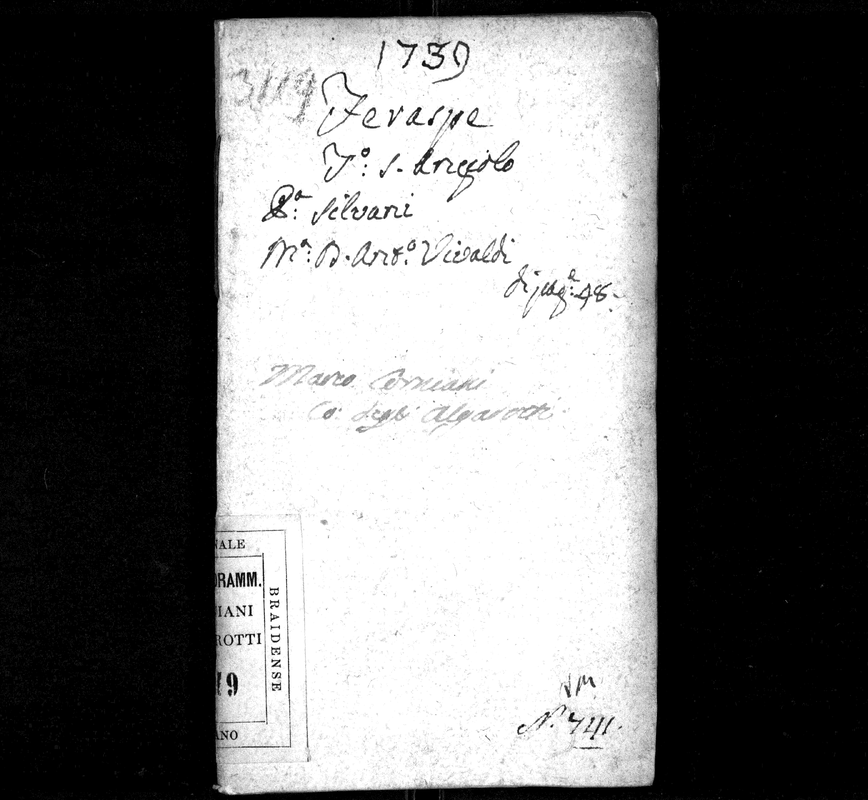 1739
3119
Feraspe
T.º: S. Angiolo
P.ª: Silvani
M.ª: D. Ant.º: Vivaldi
di pag.e: 48.
Marco Corniani
Co: degli Algarotti
NALE
DRAMM.
IANI
ROTTI
19
ANO
BRAIDENSE
N.º 741.